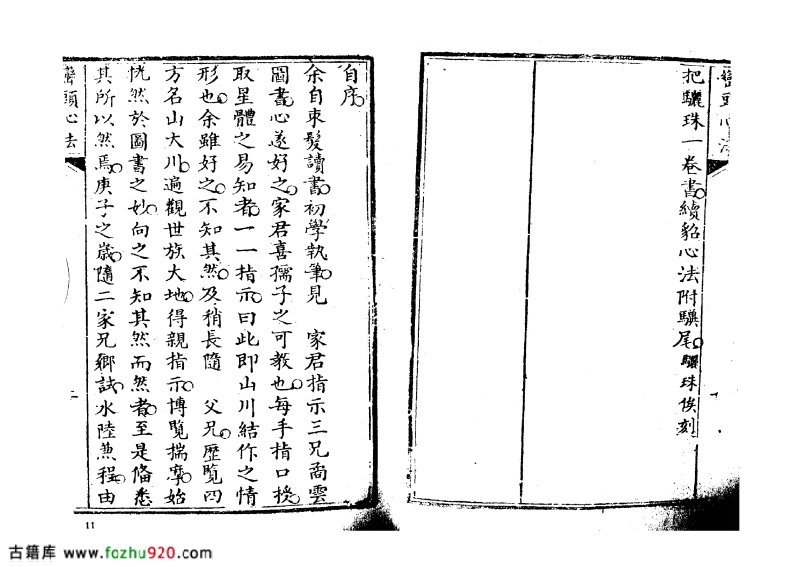 巒頭心法
把驪珠一卷書續貂心法附驥尾驪珠俟刻
自序
余自束髮讀書初學執筆見 家君指示三兄喬雲
圖書心遂好之家君喜孺子之可教也每手指口授
取星體之易知者一一指示曰此即山川結作之情
形也余雖好之不知其然及稍長隨 父兄歷覽四
方名山大川遍觀世族大地得親指示博覽揣摩始
恍然於圖書之妙向之不知其然而然者至是俻悉
其所以然焉庚子之歲隨二家兄鄉試水陸兼程由
巒頭心法
二
11
古籍库 www.fozhu920.com